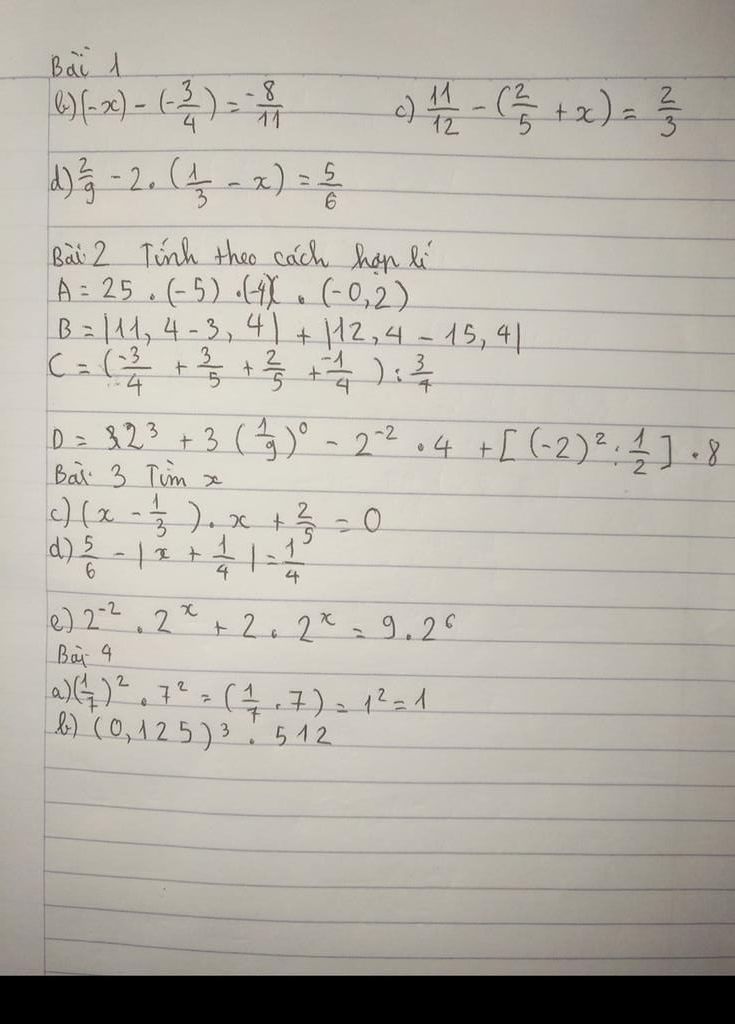 Bài 1
b) (-x) - (-3/4) = -8/11 c) 11/12 - (2/5 + x) = 2/3
d) 2/9 - 2. (1/3 - x) = 5/6
Bài 2 Tính theo cách hợp lí
A = 25 . (-5) . (-4) . (-0,2)
B = |11,4 - 3,4| + |12,4 - 15,4|
C = (-3/4 + 3/5 + 2/5 + -1/4) : 3/7
D = 2³ + 3 (1/9)⁰ - 2⁻² . 4 + [(-2)² : 1/2] . 8
Bài 3 Tìm x
c) (x - 1/3) . x + 2/5 = 0
d) 5/6 - |x + 1/4| = 1/4
e) 2⁻² . 2ˣ + 2 . 2ˣ = 9 . 2⁶
Bài 4
a) (1/7)² . 7² = (1/7 . 7) = 1² = 1
b) (0,125)³ . 512